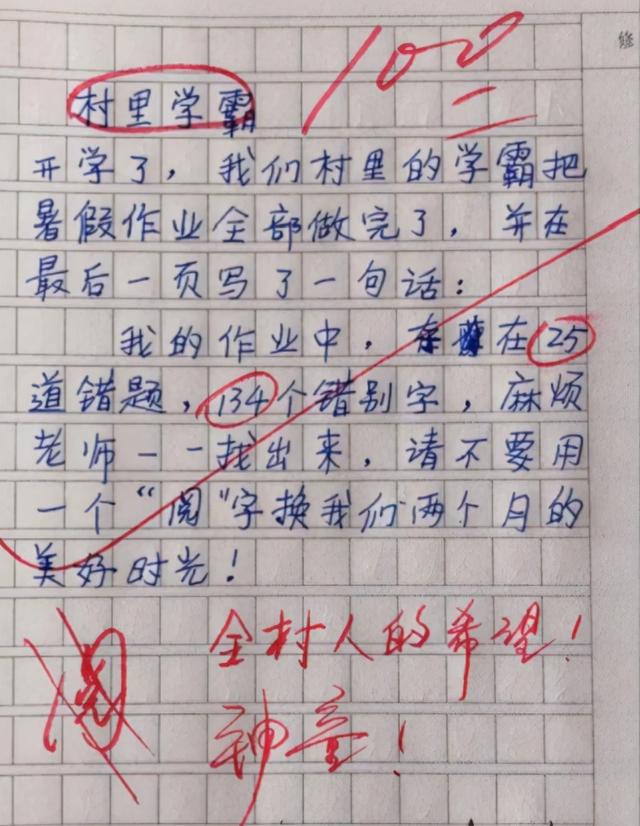 100
修
村里学霸
开学了，我们村里的学霸把
暑假作业全部做完了，并在
最后一页写了一句话：
我的作业中，存在25
道错题，134个错别字，麻烦
老师一一找出来，请不要用
一个“阅”字换我们两个月的
美好时光！
阅
全村人的希望！
神童！